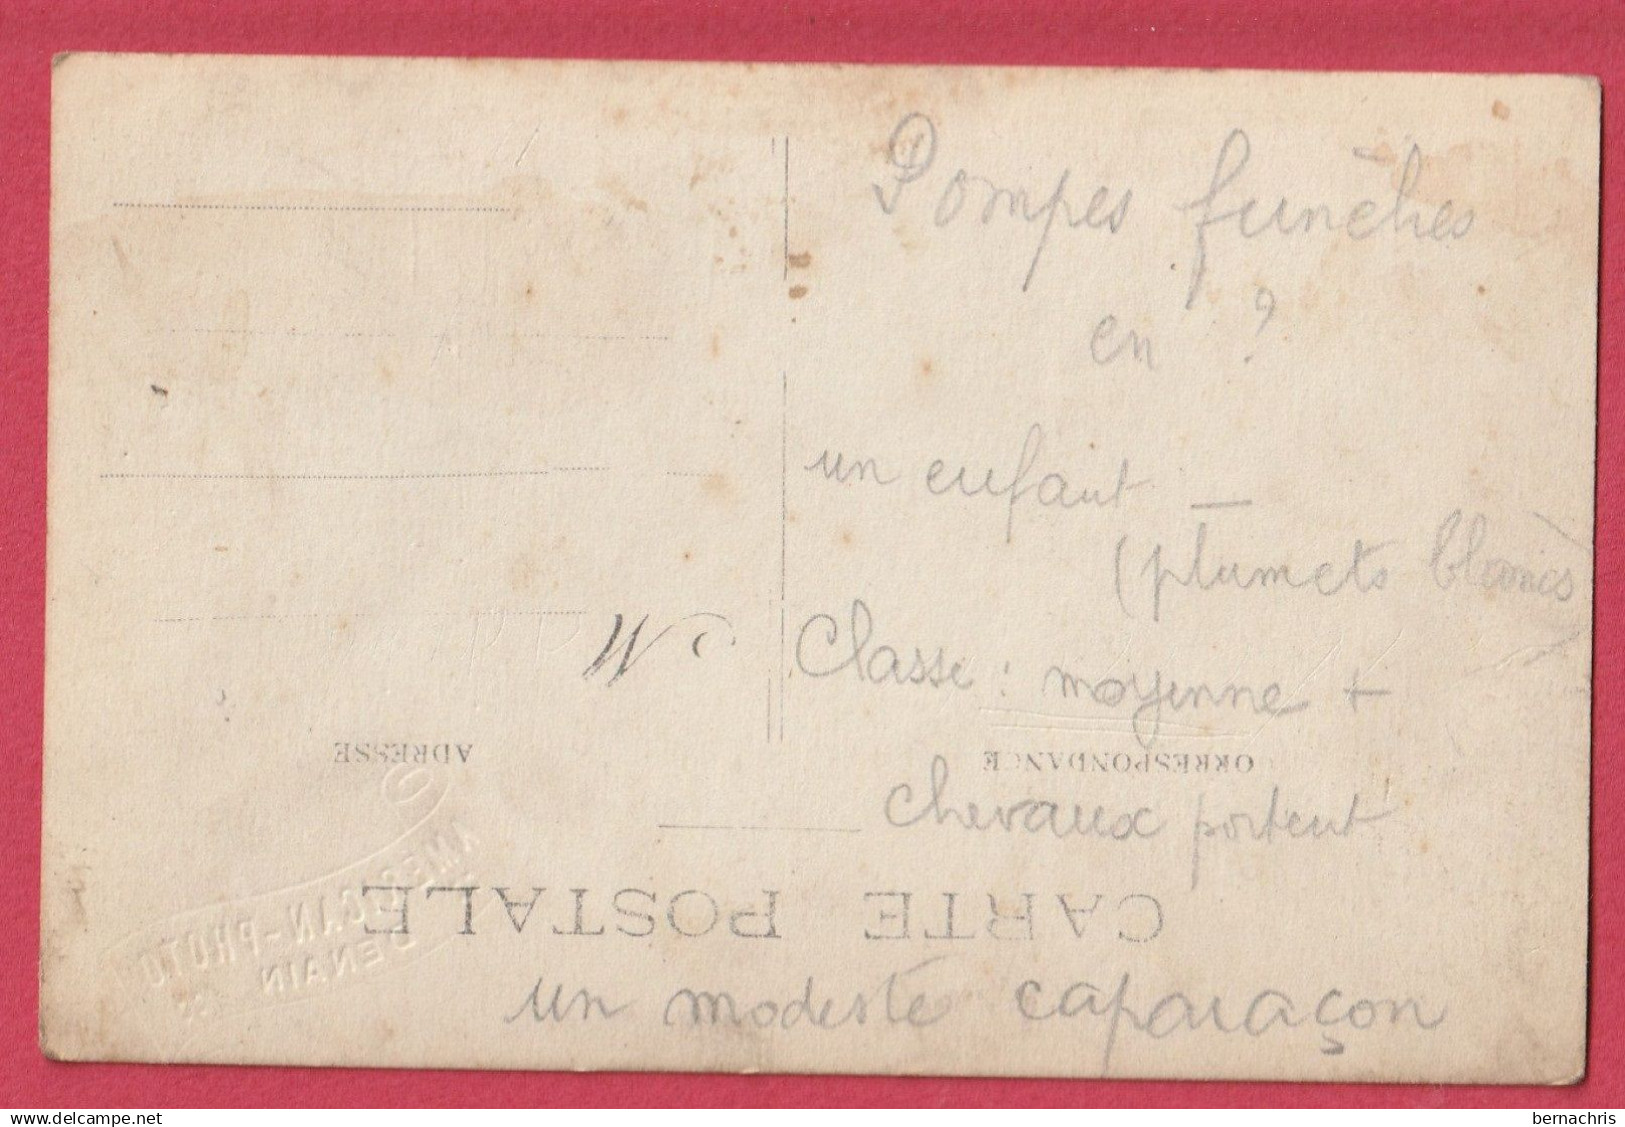 Pompes funèbres
en ?
un enfant —
(plumets blancs)
Classe : moyenne +
ADRESSE
ORRESPONDANCE
chevaux portent
CARTE POSTALE
AMERICAN-PHOTO
DENAIN
un modeste caparaçon
delcampe.net
bernachris